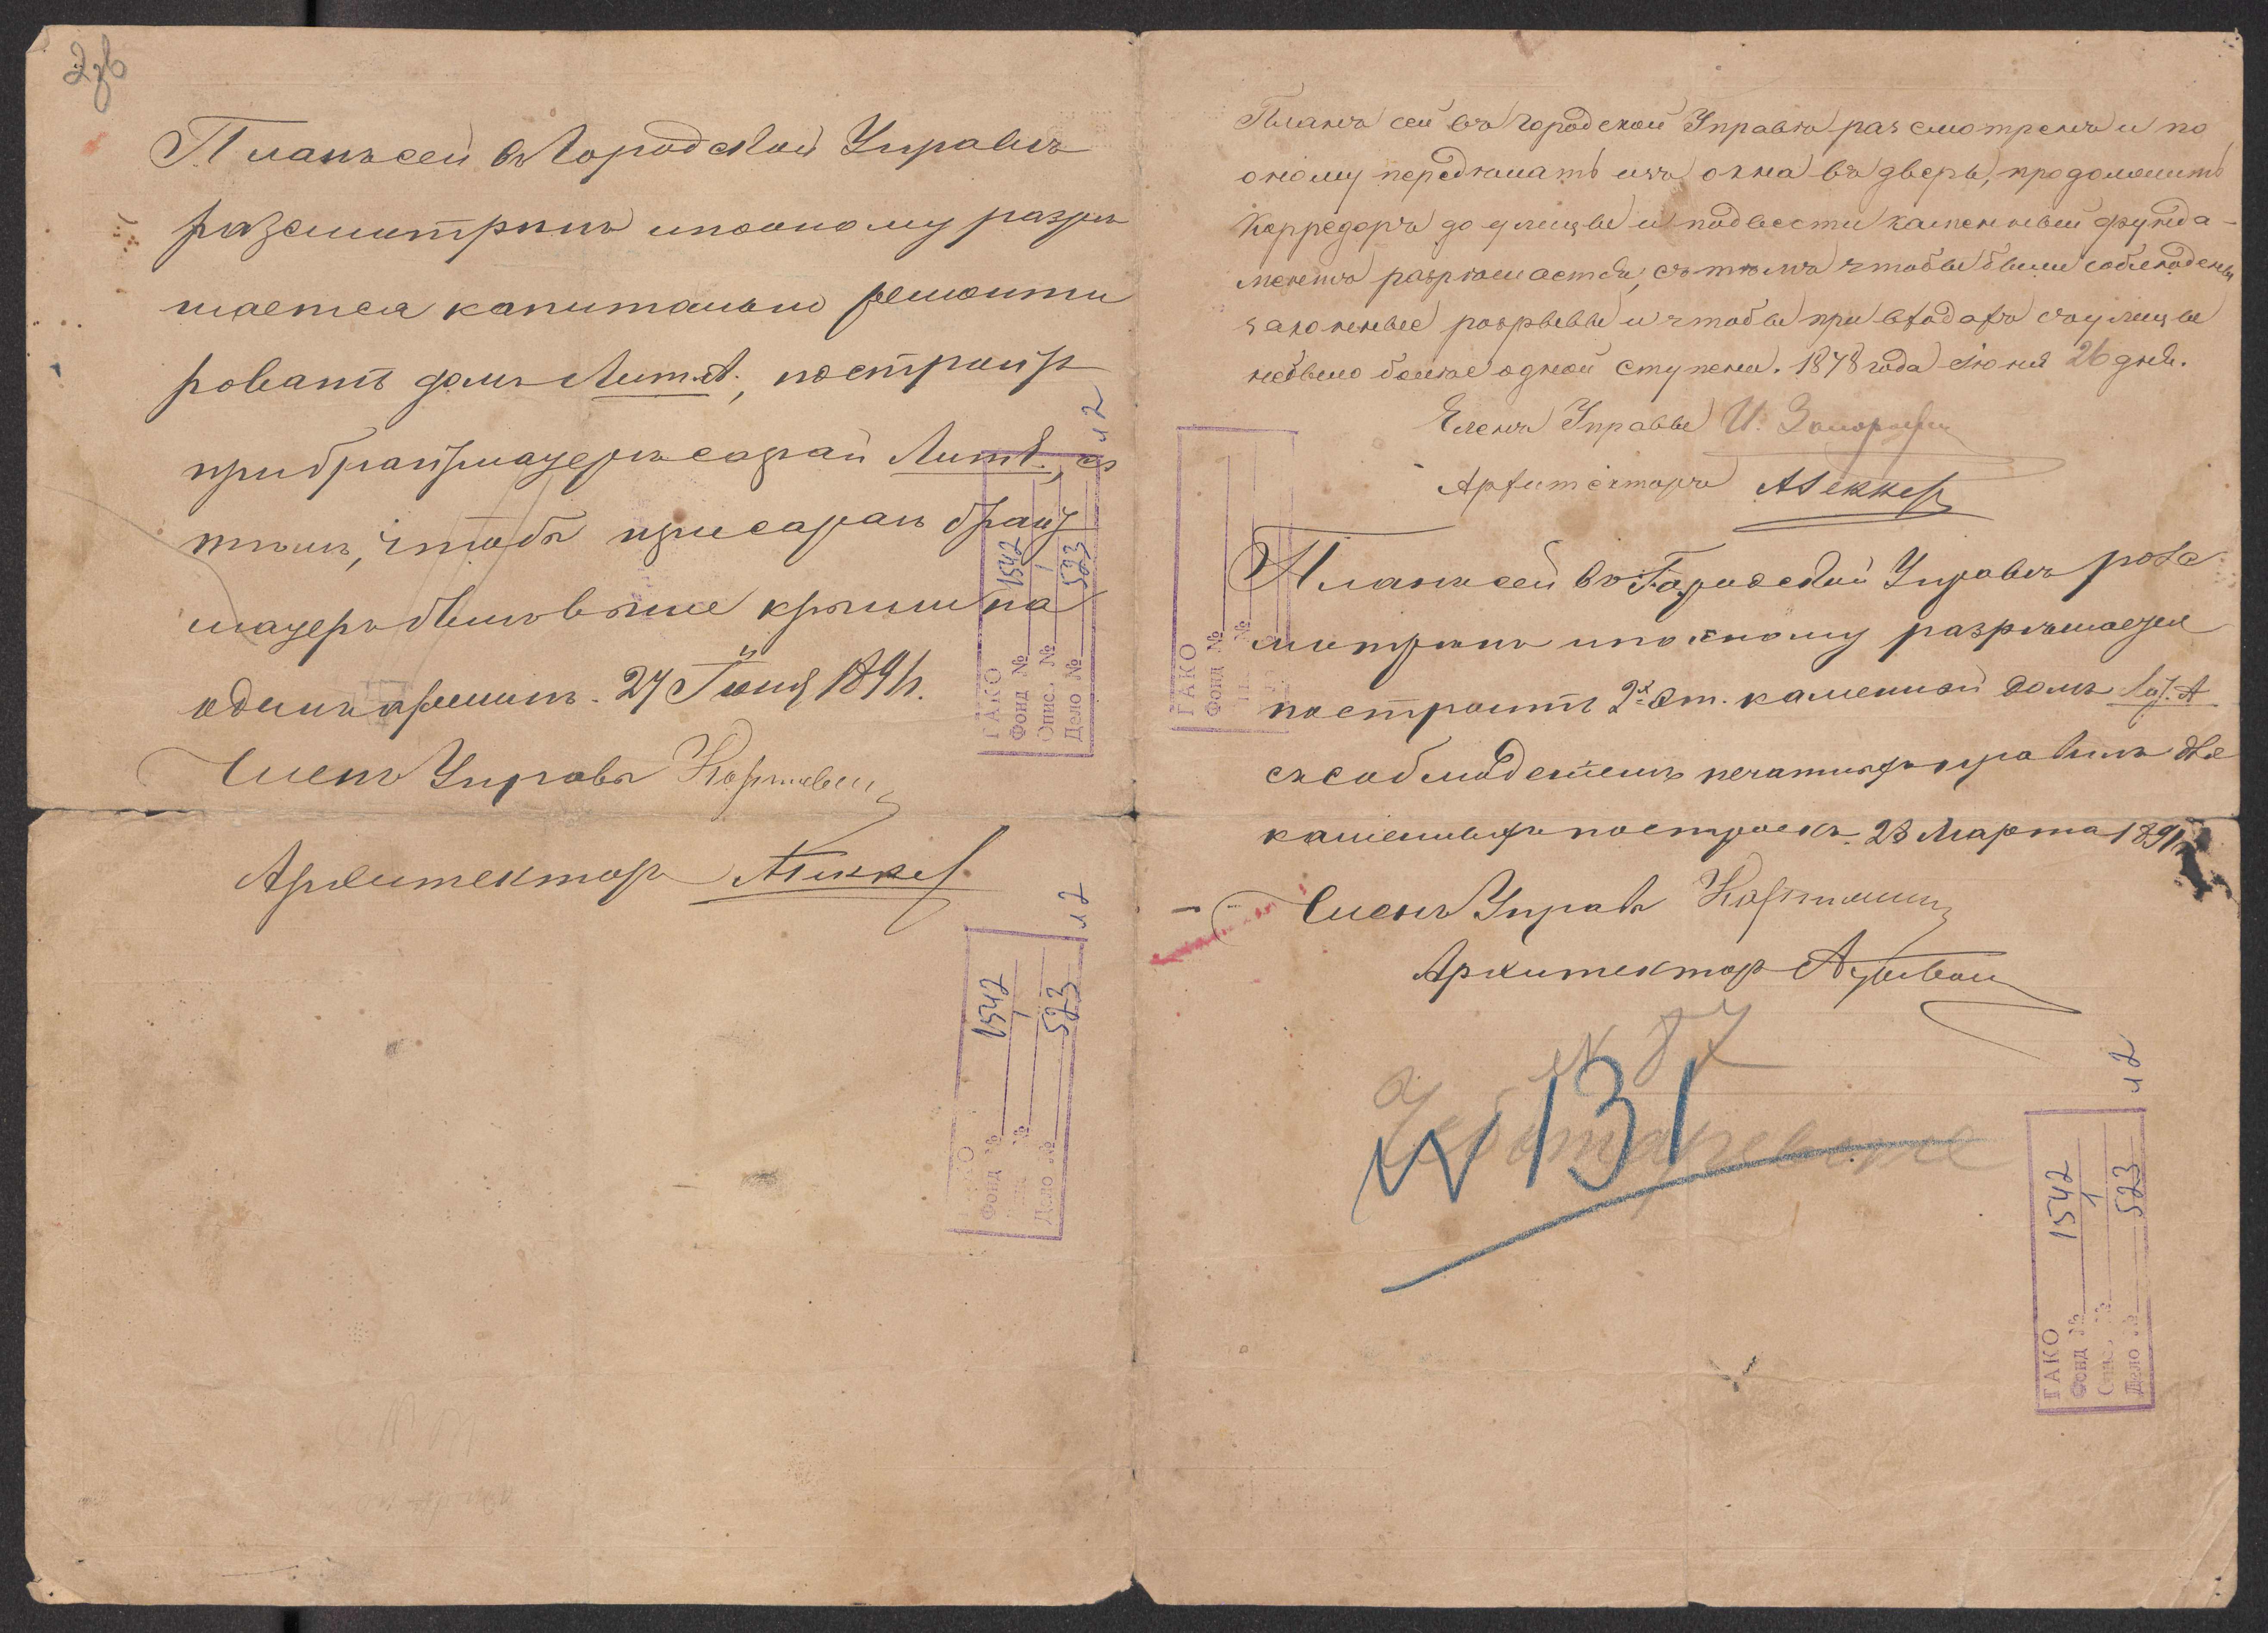 2об
Планъ сей въ Городской Управѣ
разсмотрѣнъ и по оному разрѣ
шается капитально ремонти
ровать домъ Лит. А., построить
при брантмауерѣ сарай Лит.
тѣмъ, чтобы при сараѣ брант
мауеръ былъ выше крыши на
одинъ аршинъ. 27 Іюня 1891 г.
Членъ Управы
Архитекторъ АГеккер
Планъ сей въ Городской Управѣ разсмотренъ и по
оному передѣлать изъ окна въ дверь, продолжить
Корредоръ до улицы и подвести каменный фунда-
ментъ разрѣшается, съ тѣмъ чтобы были соблюдены
законные розрывы и чтобы при входахъ съ улицы
небыло болѣе одной ступени. 1878 года Июня 26 дня.
Членъ Управы И.
Архитекторъ АГеккер
Планъ сей въ Городской Управѣ розс
мотрѣнъ и по оному разрѣшается
построить 2х эт. каменный домъ Лит. А
съ соблюденіемъ печатныхъ правилъ для
каменныхъ построекъ. 28 Марта 1891 г.
Членъ Управы
Архитектор
№ 87
№ 131
ГАКО
Фонд № 1542
Опис. № 1
Дело № 523
л 2
ГАКО
Фонд №
№
Фонд № 1542
№ 1
Дело № 523
л 2
ГАКО
Фонд № 1542
Опис. № 1
Дело № 523
л 2